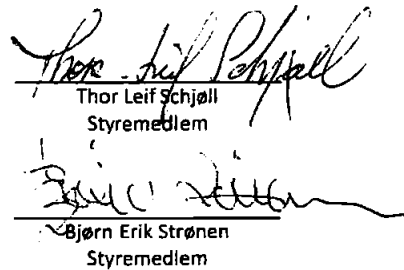 Thor Leif Schjøll
Thor Leif Schjøll
Styremedlem
Bjørn Erik Strønen
Styremedlem